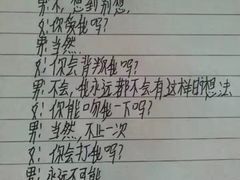 男:不,想到别想,
女:你愛我吗?
男:当然.
女:你会背叛我吗?
男:不会,我永远都不会有这样的想法
女:你能吻我一下吗?
男:当然,不止一次
女:你会打我吗?
男:永远不可能